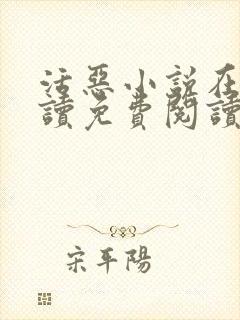 活惡小說在
讀免費閱讀
宋平陽